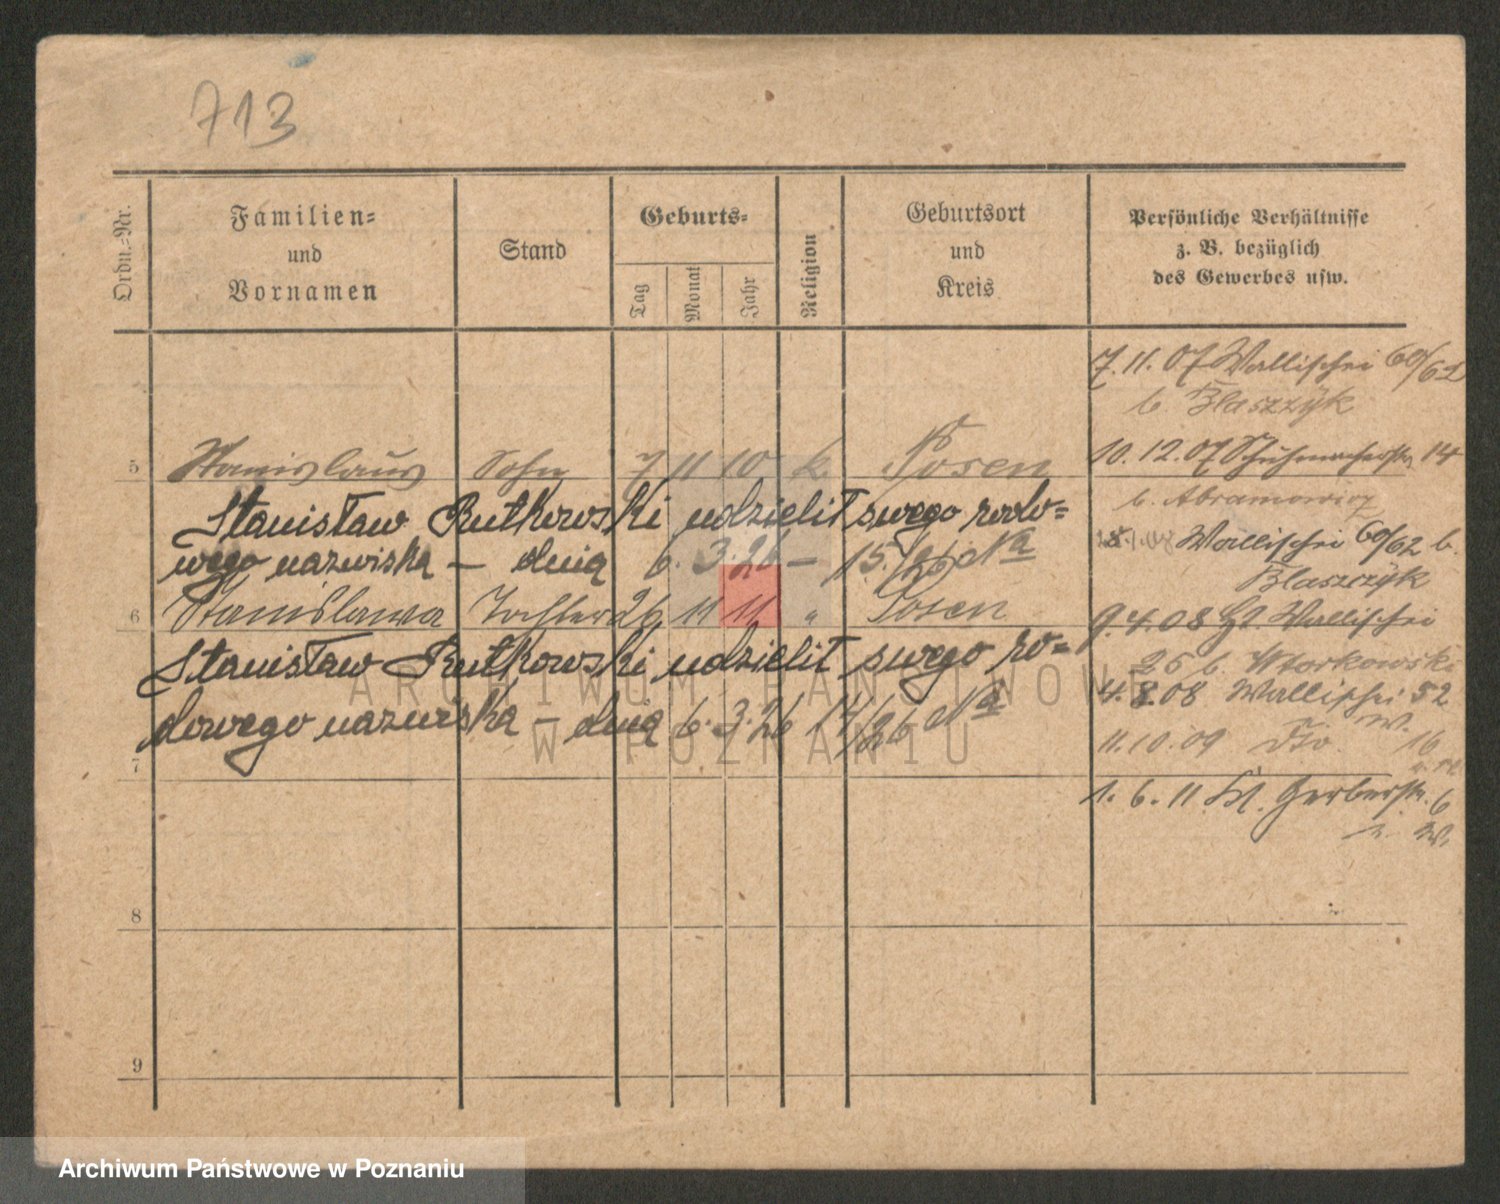 713
Ordn.-Nr.
Familien=
und
Vornamen
Stand
Geburts=
Tag
Monat
Jahr
Religion
Geburtsort
und
Kreis
Persönliche Verhältnisse
z. B. bezüglich
des Gewerbes usw.
7.11.07 Wallischei 60/62
b. Blaszzÿk
5 Stanislaus Sohn 7 11 10 k. Posen
10.12.07 Schuhmacherstr. 14
b. Abramowicz
Stanisław Rutkowski udzielił swego rodo=
Wallischei 60/62 b.
wego nazwiska – dnia 6. 3. 26 – 15/26 Na
Blaszczÿk
6 Stanislawa Tochter 26 11 11 " Posen
9.4.08 Wallischei
Stanisław Rutkowski udzielił swego ro=
25 b. Wtorkowski
4.8.08 Wallischei 52
dowego nazwiska – dnia 6. 3. 26 14/26 Na
W.
11.10.09 16
7
1.6.11 Kl. Gerberstr. 6
W.
8
9
ARCHIWUM PAŃSTWOWE
W POZNANIU
Archiwum Państwowe w Poznaniu